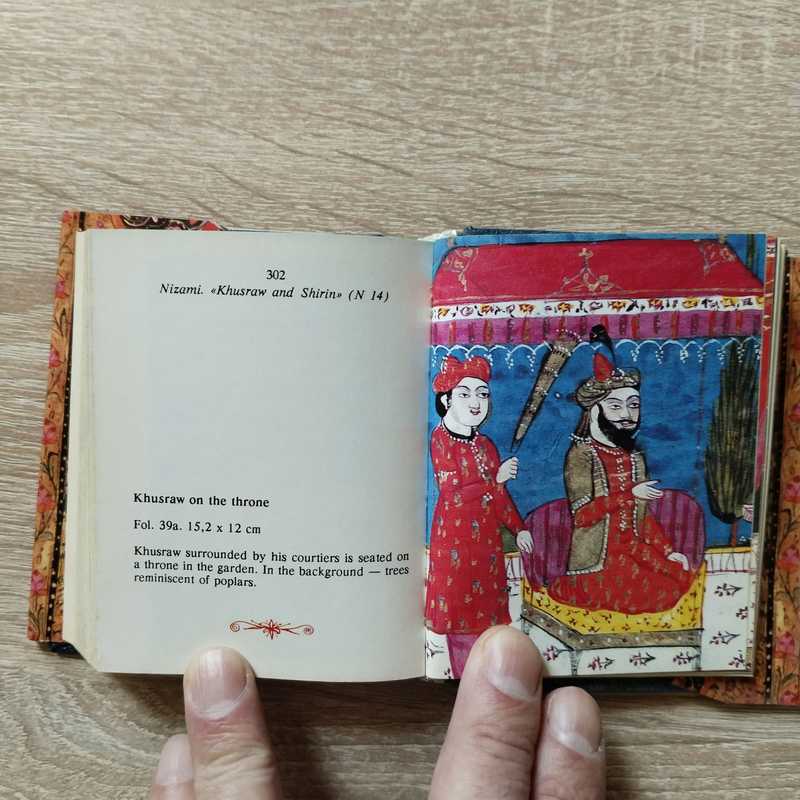 302
Nizami. «Khusraw and Shirin» (N 14)
Khusraw on the throne
Fol. 39a. 15,2 x 12 cm
Khusraw surrounded by his courtiers is seated on
a throne in the garden. In the background — trees
reminiscent of poplars.